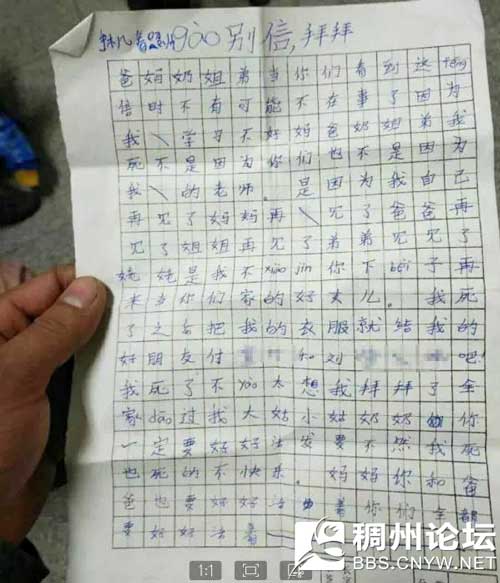 gào别信,拜拜
爸妈奶姐弟当你们看到这fēng
信时不有可能不在事了因为
我 学习不好妈爸奶姐弟我
死不是因为你们也不是因为
我 的老师。是因为我自己
再见了妈妈再 见了爸爸再
见了姐姐再见了弟弟见见了
姥姥是我不xiào jìn你下bèi子再
来当你们家的好女儿。我死
了之后把我的衣服就给我的
好朋友付 和刘 吧!
我死了不yào太想我拜拜了全
家 过我大姑小姑奶奶 你
一定要好好活 要不然我死
也死的不快乐。妈妈你和爸
爸也要好好活 着你们全部
要好好活着
1:1
稠州论坛
BBS.CNYW.NET